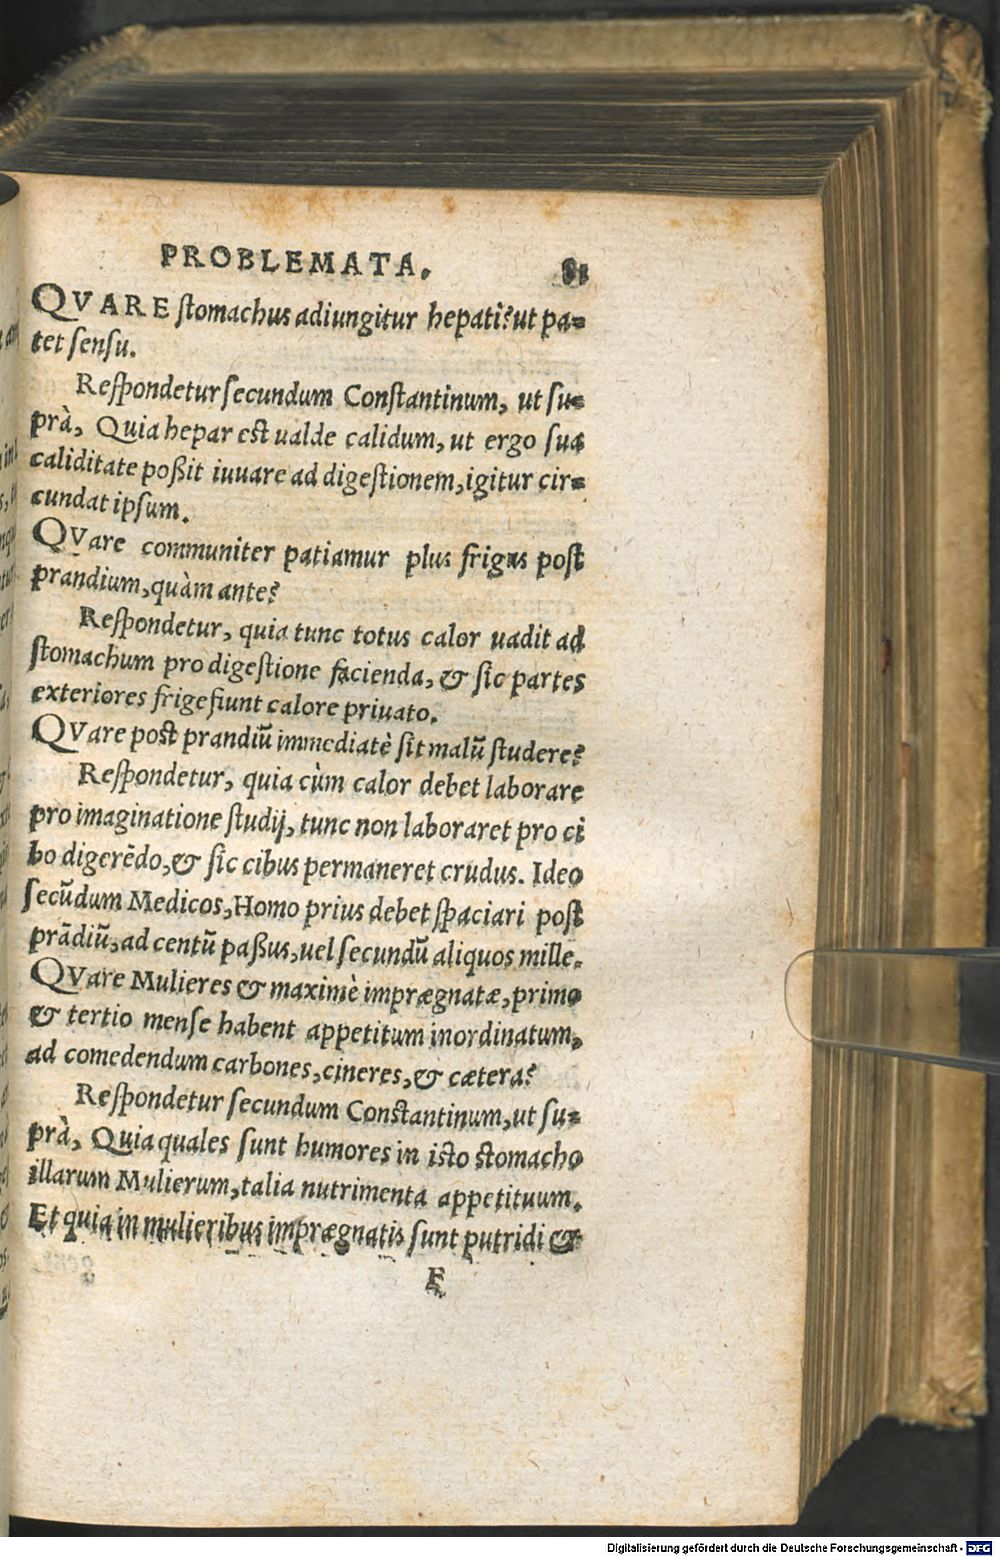 PROBLEMATA. 81
QVARE stomachus adiungitur hepati? ut pa=
tet sensu.
Respondetur secundum Constantinum, ut su=
prà, Quia hepar est ualde calidum, ut ergo sua
caliditate poßit iuuare ad digestionem, igitur cir=
cundat ipsum.
QVare communiter patiamur plus frigus post
prandium, quàm ante?
Respondetur, quia tunc totus calor uadit ad
stomachum pro digestione facienda, & sic partes
exteriores frigefiunt calore priuato.
QVare post prandiũ immediatè sit malũ studere?
Respondetur, quia cùm calor debet laborare
pro imaginatione studij, tunc non laboraret pro ci
bo digerẽdo, & sic cibus permaneret crudus. Ideo
secũdum Medicos, Homo prius debet spaciari post
prãdiũ, ad centũ paßus, uel secundũ aliquos mille.
QVare Mulieres & maximè imprægnatæ, primo
& tertio mense habent appetitum inordinatum,
ad comedendum carbones, cineres, & cætera?
Respondetur secundum Constantinum, ut su=
prà, Quia quales sunt humores in isto stomacho
illarum Mulierum, talia nutrimenta appetituum.
Et quia in mulieribus imprægnatis sunt putridi &
F
Digitalisierung gefördert durch die Deutsche Forschungsgemeinschaft - DFG